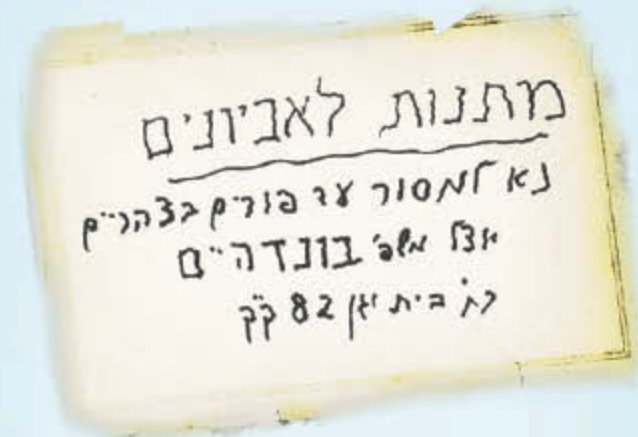 מתנות לאביונים
נא למסור עד פורים בצהריים
אצל משפ' בונדהיים
רח' בית וגן 82 ק"ק